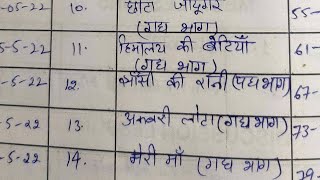 -05-22 10. छोटा जादूगर 55-
(गद्य भाग)
5-5-22 11. हिमालय की बेटियाँ 61-
(गद्य भाग)
-5-22 12. झाँसी की रानी (पद्य भाग) 67-
-5-22 13. अकबरी लोटा (गद्य भाग) 73-
-5-22 14. मेरी माँ (गद्य भाग) 79-